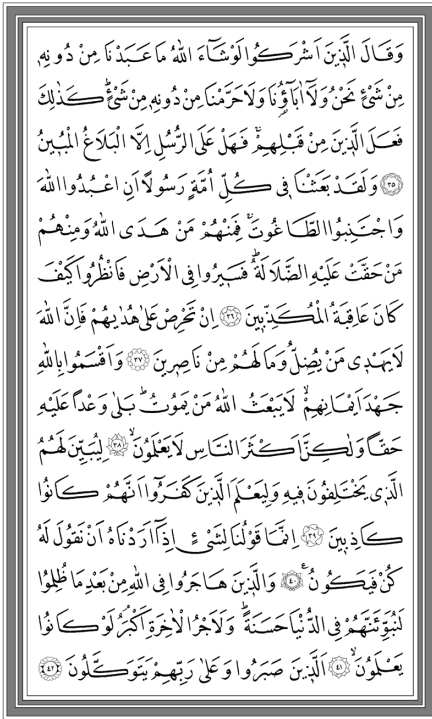 وَقَالَ الَّذ۪ينَ اَشْرَكُوا لَوْ شَٓاءَ اللّٰهُ مَا عَبَدْنَا مِنْ دُونِه۪
مِنْ شَيْءٍ نَحْنُ وَلَٓا اٰبَٓاؤُ۬نَا وَلَا حَرَّمْنَا مِنْ دُونِه۪ مِنْ شَيْءٍۜ كَذٰلِكَ
فَعَلَ الَّذ۪ينَ مِنْ قَبْلِهِمْۚ فَهَلْ عَلَى الرُّسُلِ اِلَّا الْبَلَاغُ الْمُب۪ينُ
﴿٣٥﴾ وَلَقَدْ بَعَثْنَا ف۪ي كُلِّ اُمَّةٍ رَسُولًا اَنِ اعْبُدُوا اللّٰهَ
وَاجْتَنِبُوا الطَّاغُوتَۚ فَمِنْهُمْ مَنْ هَدَى اللّٰهُ وَمِنْهُمْ
مَنْ حَقَّتْ عَلَيْهِ الضَّلَالَةُۜ فَس۪يرُوا فِي الْاَرْضِ فَانْظُرُوا كَيْفَ
كَانَ عَاقِبَةُ الْمُكَذِّب۪ينَ ﴿٣٦﴾ اِنْ تَحْرِصْ عَلٰى هُدٰيهُمْ فَاِنَّ اللّٰهَ
لَا يَهْد۪ي مَنْ يُضِلُّ وَمَا لَهُمْ مِنْ نَاصِر۪ينَ ﴿٣٧﴾ وَاَقْسَمُوا بِاللّٰهِ
جَهْدَ اَيْمَانِهِمْۙ لَا يَبْعَثُ اللّٰهُ مَنْ يَمُوتُۜ بَلٰى وَعْدًا عَلَيْهِ
حَقًّا وَلٰكِنَّ اَكْثَرَ النَّاسِ لَا يَعْلَمُونَۙ ﴿٣٨﴾ لِيُبَيِّنَ لَهُمُ
الَّذ۪ي يَخْتَلِفُونَ ف۪يهِ وَلِيَعْلَمَ الَّذ۪ينَ كَفَرُٓوا اَنَّهُمْ كَانُوا
كَاذِب۪ينَ ﴿٣٩﴾ اِنَّمَا قَوْلُنَا لِشَيْءٍ اِذَٓا اَرَدْنَاهُ اَنْ نَقُولَ لَهُ
كُنْ فَيَكُونُ۟ ﴿٤٠﴾ وَالَّذ۪ينَ هَاجَرُوا فِي اللّٰهِ مِنْ بَعْدِ مَا ظُلِمُوا
لَنُبَوِّئَنَّهُمْ فِي الدُّنْيَا حَسَنَةًۜ وَلَاَجْرُ الْاٰخِرَةِ اَكْبَرُۢ لَوْ كَانُوا
يَعْلَمُونَۙ ﴿٤١﴾ اَلَّذ۪ينَ صَبَرُوا وَعَلٰى رَبِّهِمْ يَتَوَكَّلُونَ ﴿٤٢﴾